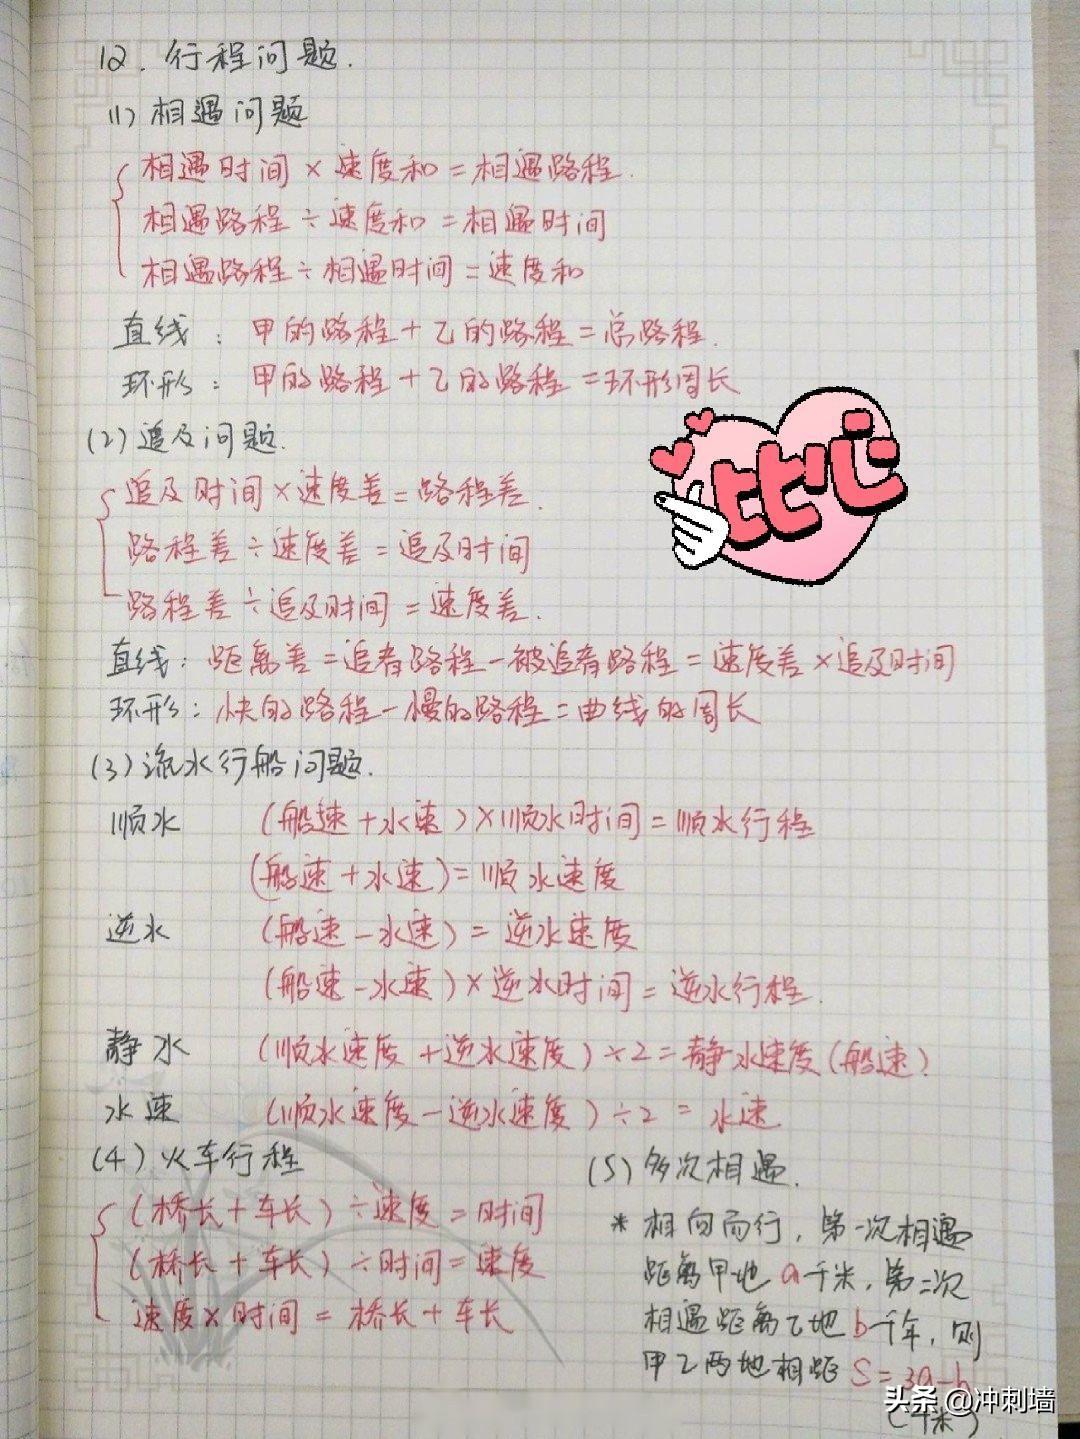 12. 行程问题.
(1) 相遇问题
相遇时间×速度和=相遇路程.
相遇路程÷速度和=相遇时间
相遇路程÷相遇时间=速度和
直线: 甲的路程+乙的路程=总路程.
环形: 甲的路程+乙的路程=环形周长
比心
(2) 追及问题.
追及时间×速度差=路程差.
路程差÷速度差=追及时间
路程差÷追及时间=速度差.
直线: 距离差=追者路程-被追者路程=速度差×追及时间
环形: 快的路程-慢的路程=曲线的周长
(3) 流水行船问题.
顺水 (船速+水速)×顺水时间=顺水行程
(船速+水速)=顺水速度
逆水 (船速-水速)=逆水速度
(船速-水速)×逆水时间=逆水行程.
静水 (顺水速度+逆水速度)÷2=静水速度(船速)
水速 (顺水速度-逆水速度)÷2=水速
(4) 火车行程
(桥长+车长)÷速度=时间
(桥长+车长)÷时间=速度
速度×时间=桥长+车长
(5) 多次相遇.
* 相向而行, 第一次相遇
距离甲地a千米, 第二次
相遇距离乙地b千年, 则
甲乙两地相距 S=3a-b
(千米)
头条 @冲刺墙